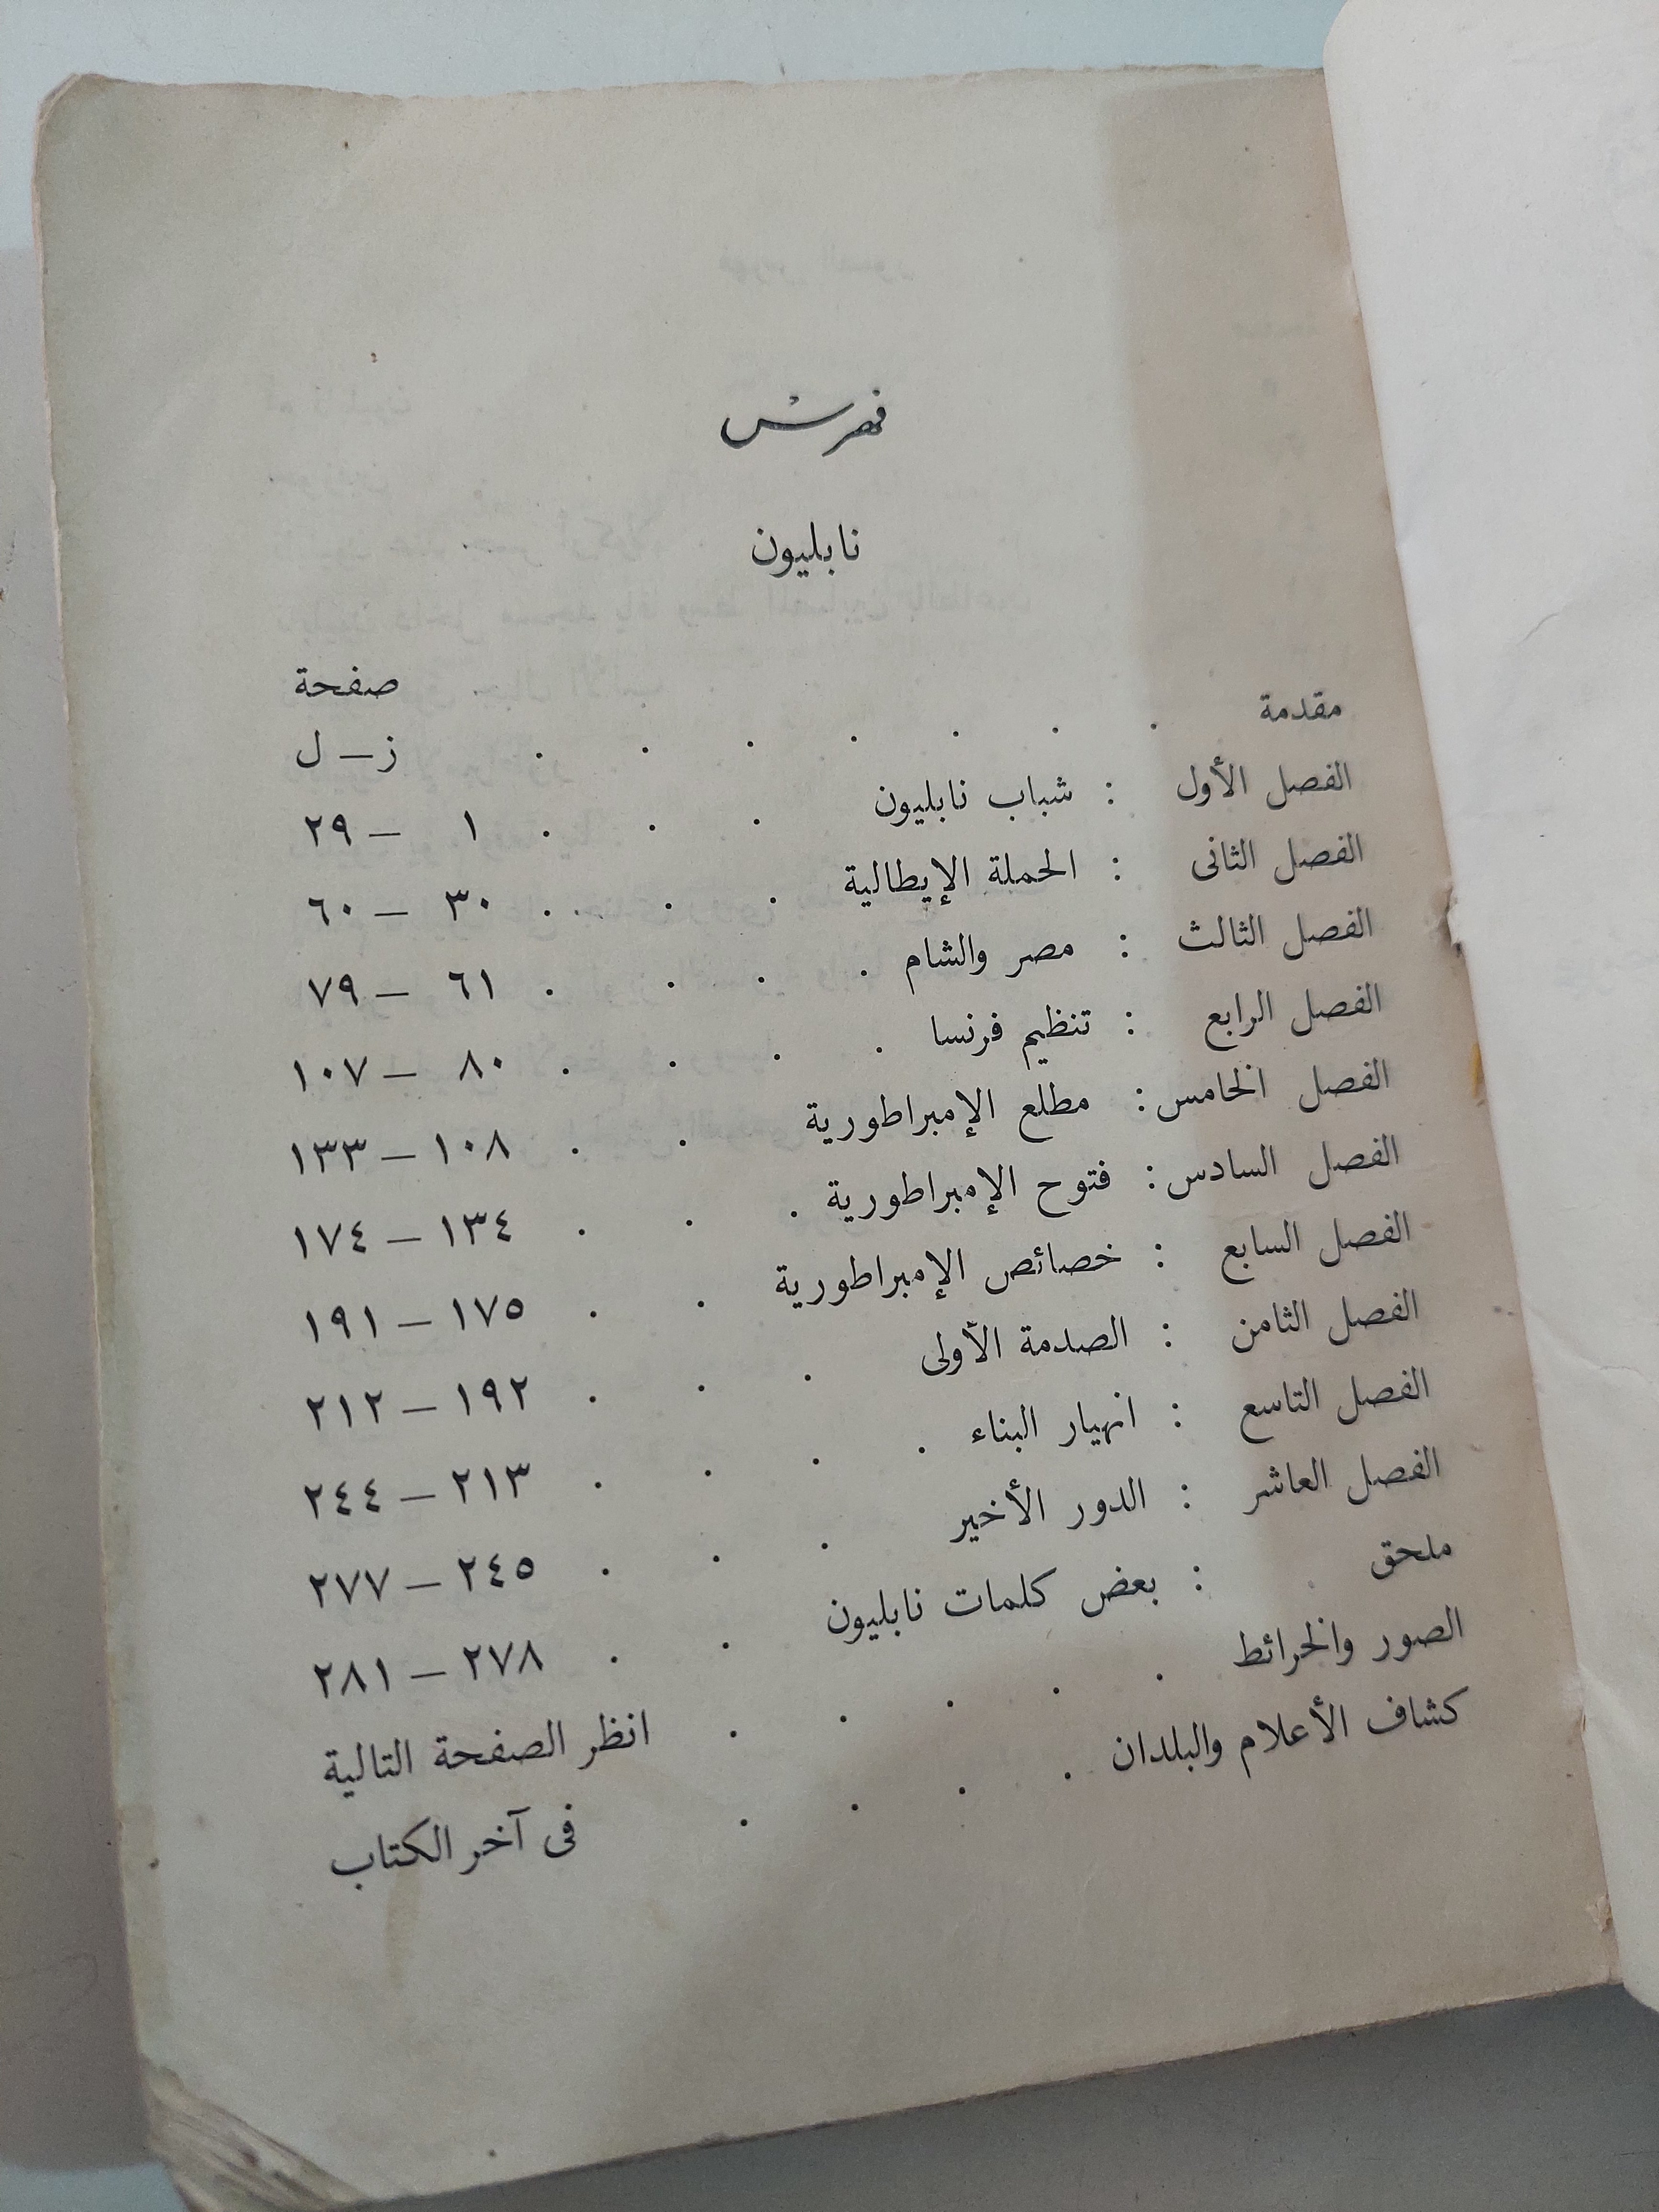 فهرس
نابليون
صفحة
مقدمة . . . . . . . ز — ل
الفصل الأول : شباب نابليون . . . ١ — ٢٩
الفصل الثانى : الحملة الإيطالية . . . ٣٠ — ٦٠
الفصل الثالث : مصر والشام . . . . ٦١ — ٧٩
الفصل الرابع : تنظيم فرنسا . . . . ٨٠ — ١٠٧
الفصل الخامس : مطلع الإمبراطورية . . ١٠٨ — ١٣٣
الفصل السادس : فتوح الإمبراطورية . . . ١٣٤ — ١٧٤
الفصل السابع : خصائص الإمبراطورية . . ١٧٥ — ١٩١
الفصل الثامن : الصدمة الأولى . . . ١٩٢ — ٢١٢
الفصل التاسع : انهيار البناء . . . . ٢١٣ — ٢٤٤
الفصل العاشر : الدور الأخير . . . ٢٤٥ — ٢٧٧
ملحق : بعض كلمات نابليون . . ٢٧٨ — ٢٨١
الصور والخرائط . . . . . انظر الصفحة التالية
كشاف الأعلام والبلدان . . . . فى آخر الكتاب